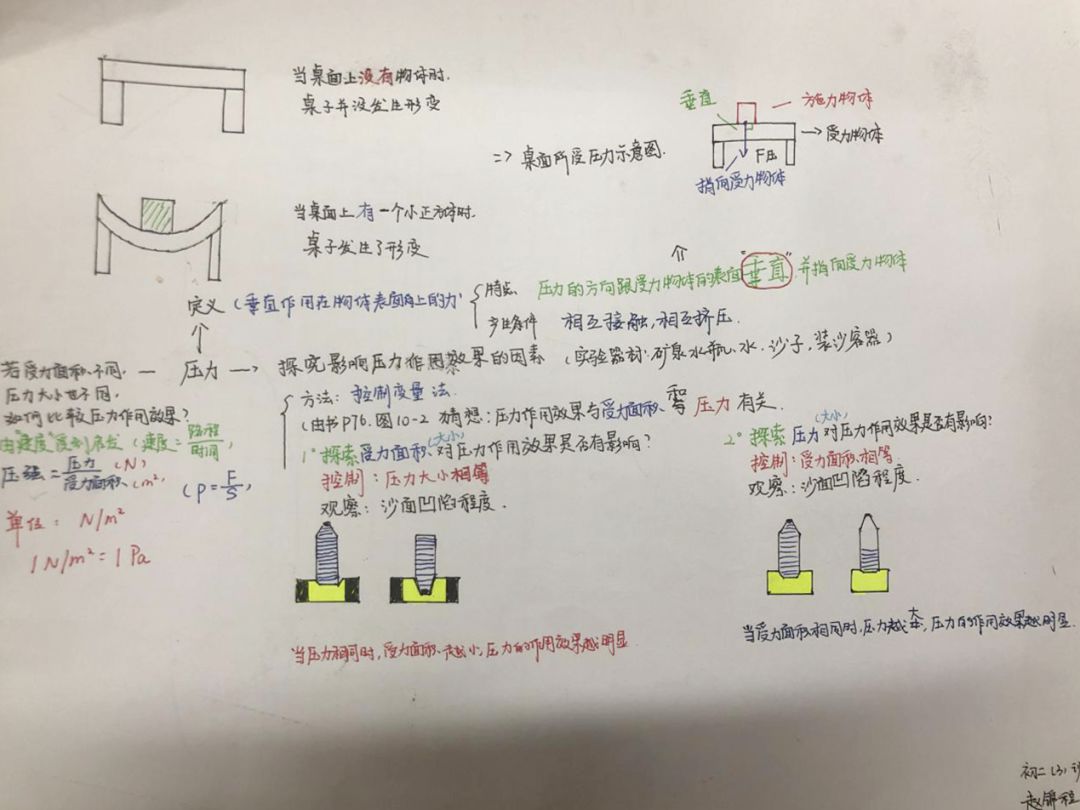 当桌面上没有物体时.
桌子并没发生形变
垂直
施力物体
受力物体
F压
指向受力物体
=> 桌面所受压力示意图.
当桌面上有一个小正方体时.
桌子发生了形变
定义(垂直作用在物体表面上的力)
特点 压力的方向跟受力物体的表面"垂直",并指向受力物体
产生条件 相互接触,相互挤压.
压力 → 探究影响压力作用效果的因素(实验器材:矿泉水瓶、水.沙子,装沙容器)
若受力面积不同,
压力大小也不同,
如何比较压力作用效果?
由"速度"受到启发(速度=路程/时间)
压强=压力(N)/受力面积(m²)
(P=F/S)
单位: N/m²
1N/m²=1Pa
方法:控制变量法.
(由书P76.图10-2 猜想:压力作用效果与受力面积和压力有关.
1°探索受力面积(大小)对压力作用效果是否有影响?
控制:压力大小相等
观察:沙面凹陷程度.
2°探索压力(大小)对压力作用效果是否有影响?
控制:受力面积相等
观察:沙面凹陷程度.
当压力相同时,受力面积越小,压力的作用效果越明显
当受力面积相同时,压力越大,压力的作用效果越明显.
初二(3)